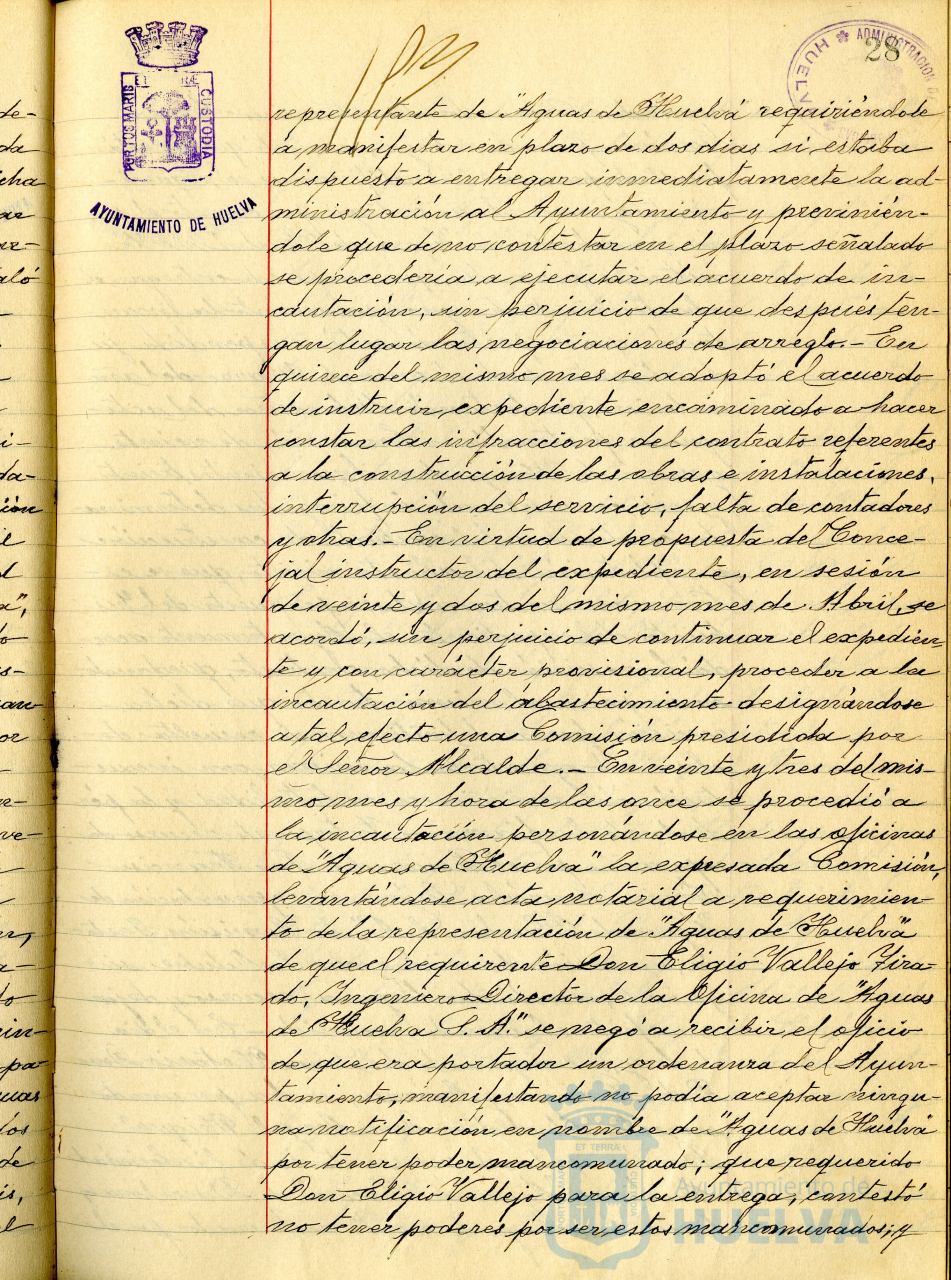 28
ADMINISTRACION
HUELV
ET
PORTUS MARIS
CUSTODIA
AYUNTAMIENTO DE HUELVA
representante de "Aguas de Huelva" requiriéndole
a manifestar en plazo de dos dias si estaba
dispuesto a entregar inmediatamente la ad-
ministración al Ayuntamiento y previnién-
dole que de no contestar en el plazo señalado
se procedería a ejecutar el acuerdo de in-
cautación, sin perjuicio de que después ten-
gan lugar las negociaciones de arreglo.- En
quince del mismo mes se adoptó el acuerdo
de instruir expediente encaminado a hacer
constar las infracciones del contrato referentes
a la construcción de las obras e instalaciones,
interrupción del servicio, falta de contadores
y otras.- En virtud de propuesta del Conce-
jal instructor del expediente, en sesión
de veinte y dos del mismo mes de Abril, se
acordó, sin perjuicio de continuar el expedien-
te y con carácter provisional, proceder a la
incautación del abastecimiento designándose
a tal efecto una Comisión presidida por
el Señor Alcalde.- En veinte y tres del mis-
mo mes y hora de las once se procedió a
la incautación personándose en las oficinas
de "Aguas de Huelva" la expresada Comisión,
levantándose acta notarial a requerimien-
to de la representación de "Aguas de Huelva"
de que el requirente Don Eligio Vallejo Tira-
do, Ingeniero Director de la Oficina de "Aguas
de Huelva S. A." se negó a recibir el oficio
de que era portador un ordenanza del Ayun-
tamiento, manifestando no podía aceptar ningu-
na notificación en nombre de "Aguas de Huelva"
por tener poder mancomunado; que requerido
Don Eligio Vallejo para la entrega, contestó
no tener poderes por ser estos mancomunados; y
ET TERRAE
Ayuntamiento de
HUELVA